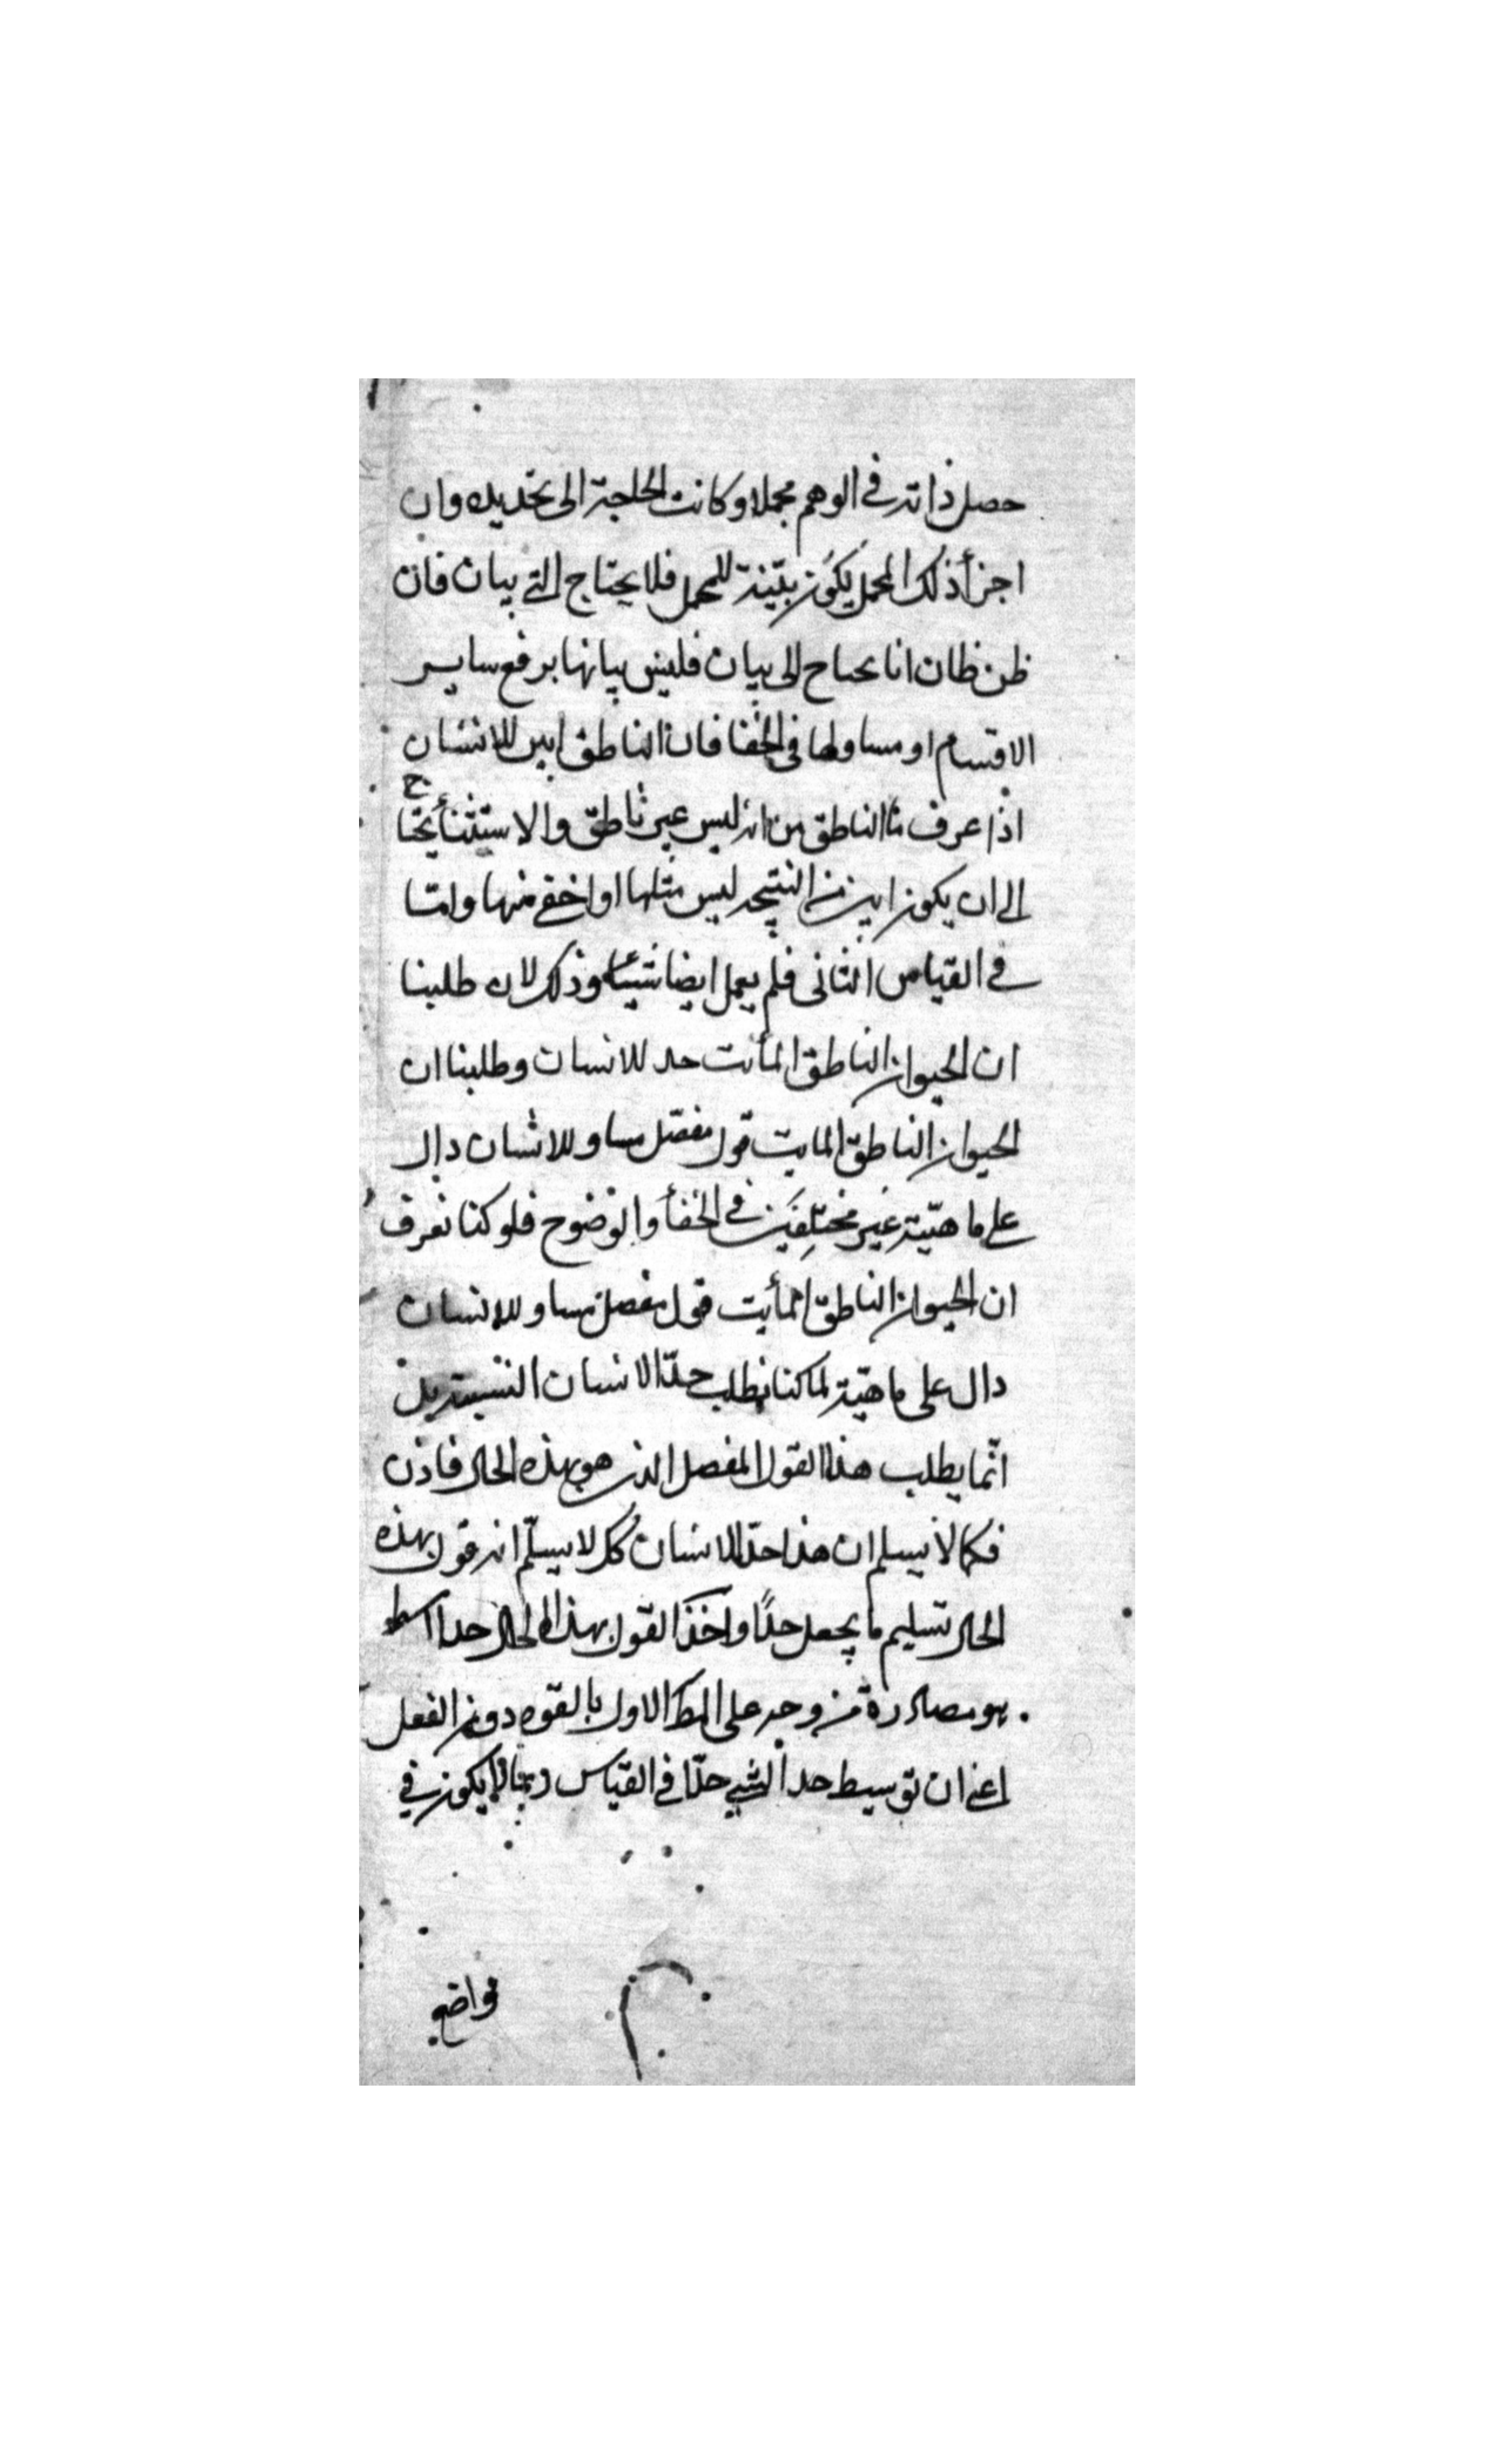 حصل ذاته في الوهم مجملا وكانت الحاجة الى تحديده وان
اجزأ ذلك المجمل يكون بيّنة للمجمل فلا يحتاج الى بيان فان
ظن ظان انا نحتاج الى بيان فليس بيانها برفع ساير
الاقسام او مساولها في الخفا فان الناطق ابين للانسان
اذا عرف ما الناطق من انه ليس غير ناطق والاستثنأ يحتاج
الى ان يكون ابين من النتيجه ليس مثلها او اخفى منها وامّا
في القياس الثاني فلم يعمل ايضا شيئا وذلك لان طلبنا
ان الحيوان الناطق المأئت حد للانسان وطلبنا ان
الحيوان الناطق المايت قول مفصّل مساو للانسان دال
على ماهيّته غير مختلفين في الخفأ والوضوح فلو كنا نعرف
ان الحيوان الناطق المأيت قول مفصل مساو للانسان
دال على ماهيّته لما كنا نطلب حدّ الانسان
انّما يطلب هذا القول المفصل الذي هو بهذه الحال فاذن
فكما لا نسلم ان هذا حدّ للانسان كك لا يسلّم انه قول بهذه
الحال تسليم ما يجعل حدّا واخذ القول بهذا الحال حدا اوسط
هو مصادرة من وجه على المط الاول بالقوه دون الفعل
اعني ان توسيط حد الشي حدّا في القياس ربّما لا يكون في
مواضع